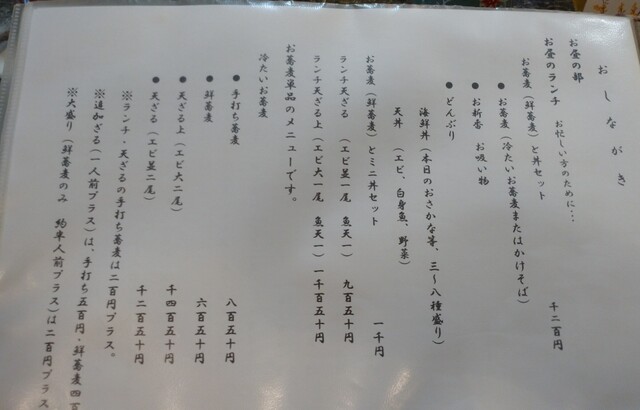 おしながき
お昼の部
お昼のランチ お忙しい方のために…
お蕎麦(鮮蕎麦)と丼セット 千二百円
●お蕎麦(冷たいお蕎麦またはかけそば)
●お新香 お吸い物
●どんぶり
海鮮丼(本日のおさかな等、三~八種盛り)
天丼 (エビ、白身魚、野菜)
お蕎麦(鮮蕎麦)とミニ丼セット 一千円
ランチ天ざる (エビ並一尾 魚天一) 九百五十円
ランチ天ざる上(エビ大一尾 魚天一)一千百五十円
お蕎麦単品のメニューです。
冷たいお蕎麦
●手打ち蕎麦 八百五十円
●鮮蕎麦 六百五十円
●天ざる上(エビ大二尾) 千四百五十円
●天ざる(エビ並二尾) 千二百五十円
※ランチ・天ざるの手打ち蕎麦は二百円プラス。
※追加ざる(一人前プラス)は、手打ち五百円・鮮蕎麦四百
※大盛り(鮮蕎麦のみ 約半人前プラス)は二百円プラス